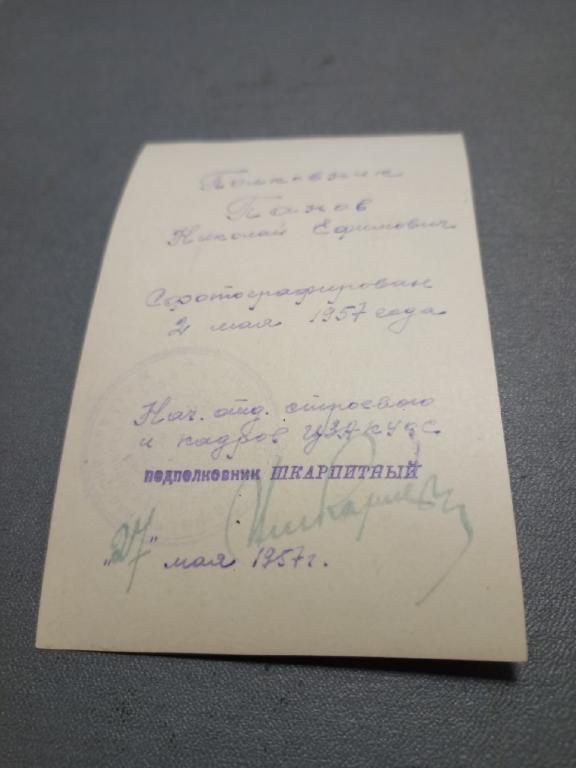 Полковник
Панов
Николай Ефимович
Сфотографирован
2 мая 1957 года
Нач. отд. строевого
и кадров ЦЗАКУОС
подполковник ШКАРПИТНЫЙ
"27" мая 1957 г.